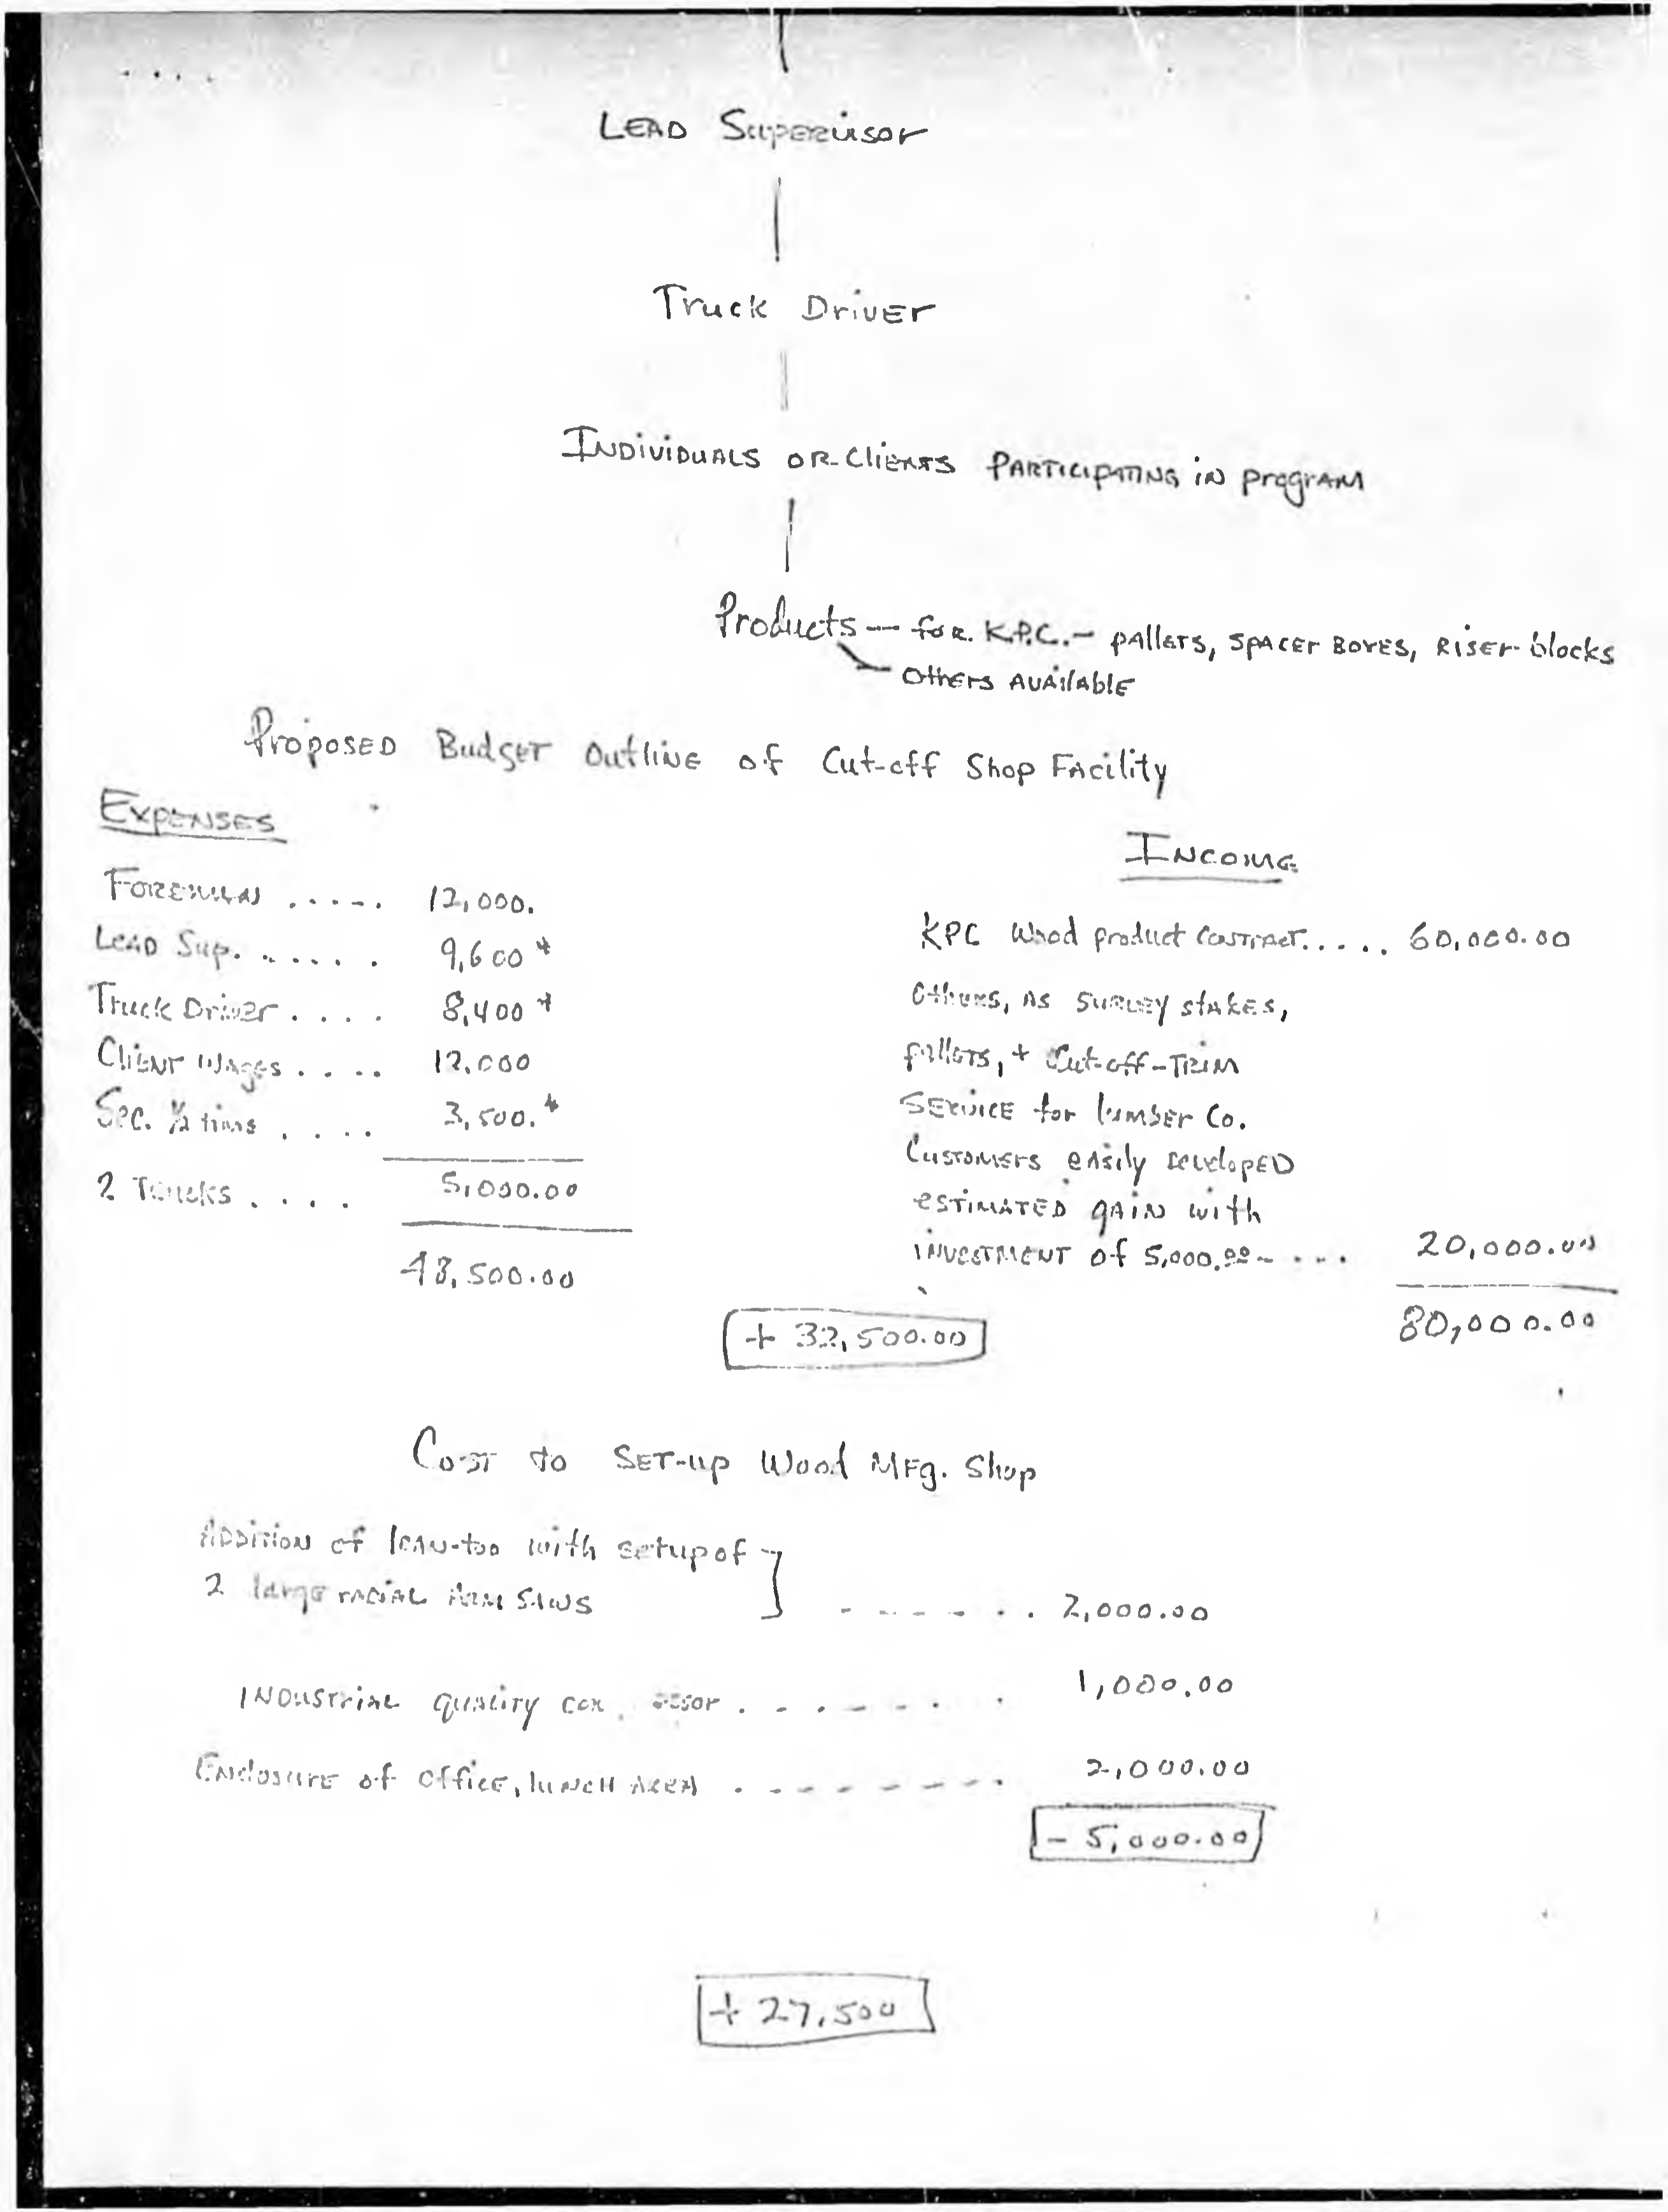 LEAD Supervisor
Truck Driver
INDIVIDUALS OR Clients PARTICIPATING in program
Products — for K.P.C. — pallets, SPACER BOXES, RISER blocks
Others AVAILABLE
Proposed Budget Outline of Cut-off Shop Facility
EXPENSES
INCOME
Foreman ..... 12,000.
Lead Sup. ...... 9,600 *
Truck Driver .... 8,400 *
Client Wages .... 12,000
Sec. ½ time .... 3,500. *
2 Trucks .... 5,000.00
48,500.00
KPC Wood product Contract..... 60,000.00
Others, as survey stakes,
pallets, + Cut-off-Trim
Service for lumber Co.
Customers easily developed
estimated gain with
investment of 5,000.00 - ... 20,000.00
80,000.00
+ 32,500.00
Cost to Set-up Wood Mfg. Shop
Addition of lean-too with setup of
2 large radial arm saws ------.. 2,000.00
Industrial quality ....--.... 1,000.00
Enclosure of office, lunch area .-------. 2,000.00
- 5,000.00
+ 27,500